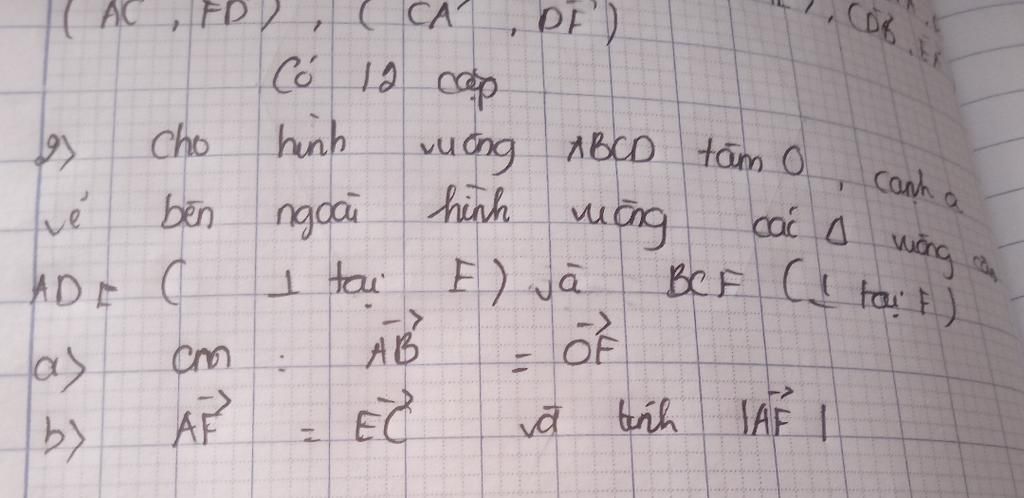 (AC, FD), (CA, DF)
, (DB,
Có 12 cặp
9) Cho hình vuông ABCD tâm O, cạnh a
vẽ bên ngoài hình vuông các Δ vuông cân
ADE ( ⊥ tại E) và BCF (⊥ tại F)
a) cm : \overrightarrow{AB} = \overrightarrow{OF}
b) \overrightarrow{AF} = \overrightarrow{EC} và tính |\overrightarrow{AF}|